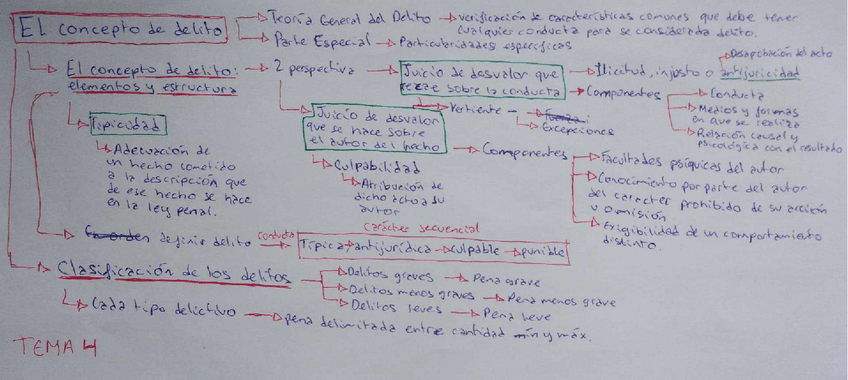 El concepto de delito
Teoría General del Delito → verificación de características comunes que debe tener
cualquier conducta para se considerada delito.
Parte Especial → Particularidades específicas
El concepto de delito:
elementos y estructura
2 perspectiva
Juicio de desvalor que
recae sobre la conducta
Ilicitud, injusto o antijuricidad
Desaprobación del acto
Componentes
Conducta
Medios y formas
en que se realiza
Relación causal y
psicológica con el resultado
Vertiente
Excepciones
Tipicidad
Adecuación de
un hecho cometido
a la descripción que
de ese hecho se hace
en la ley penal.
Juicio de desvalor
que se hace sobre
el autor del hecho
Culpabilidad
Atribución de
dicho acto a su
autor
Componentes
Facultades psíquicas del autor
Conocimiento por parte del autor
del carácter prohibido de su acción
u omisión
Exigibilidad de un comportamiento
distinto.
definir delito
conducta
carácter secuencial
Típica → antijurídica → culpable → punible
Clasificación de los delitos
Delitos graves → Pena grave
Delitos menos graves → Pena menos grave
Delitos leves → Pena leve
Cada tipo delictivo → pena delimitada entre cantidad mín y máx.
TEMA 4